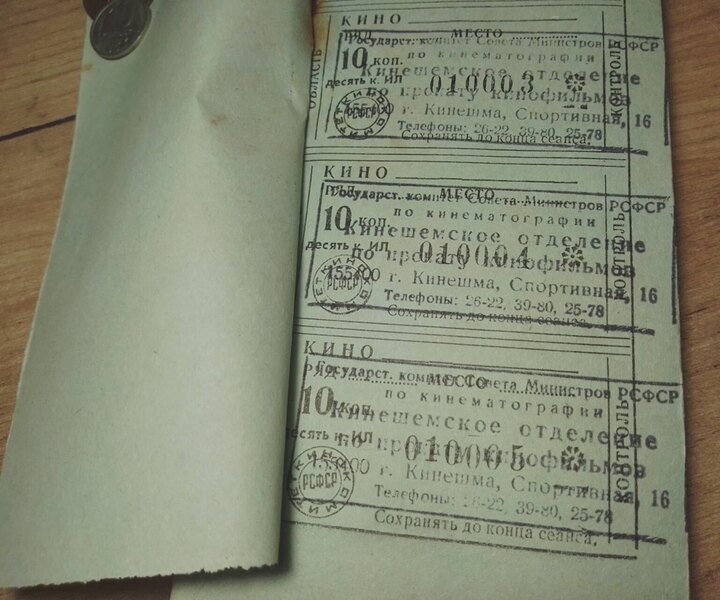 КИНО
РЯД МЕСТО
Государст. комитет Совета Министров РСФСР
10 коп. по кинематографии
Кинешемское отделение
десять к. ИЛ 010003
по прокату кинофильмов
г. Кинешма, Спортивная, 16
РСФСР
Телефоны: 26-22, 39-80, 25-78
Сохранять до конца сеанса.
ОБЛАСТЬ
КОНТРОЛЬ
КИНО
РЯД МЕСТО
Государст. комитет Совета Министров РСФСР
10 коп. по кинематографии
Кинешемское отделение
десять к. ИЛ 010004
по прокату кинофильмов
г. Кинешма, Спортивная, 16
РСФСР
Телефоны: 26-22, 39-80, 25-78
Сохранять до конца сеанса.
КОНТРОЛЬ
КИНО
РЯД МЕСТО
Государст. комитет Совета Министров РСФСР
10 коп. по кинематографии
Кинешемское отделение
десять к. ИЛ 010005
по прокату кинофильмов
г. Кинешма, Спортивная, 16
КИНОКОМИТЕТ РСФСР
Телефоны: 26-22, 39-80, 25-78
Сохранять до конца сеанса.
КОНТРОЛЬ